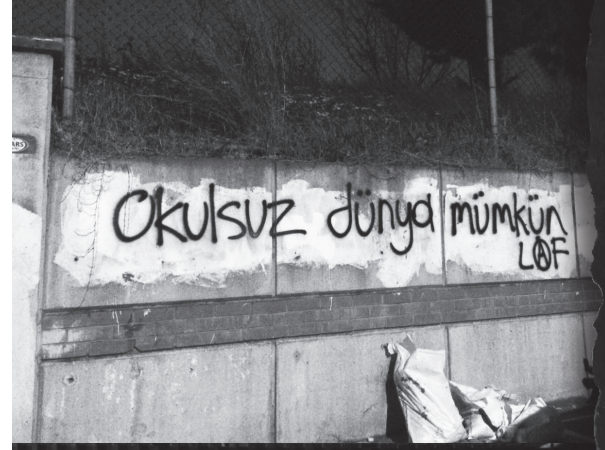 Okulsuz dünya mümkün
LAF
ARS